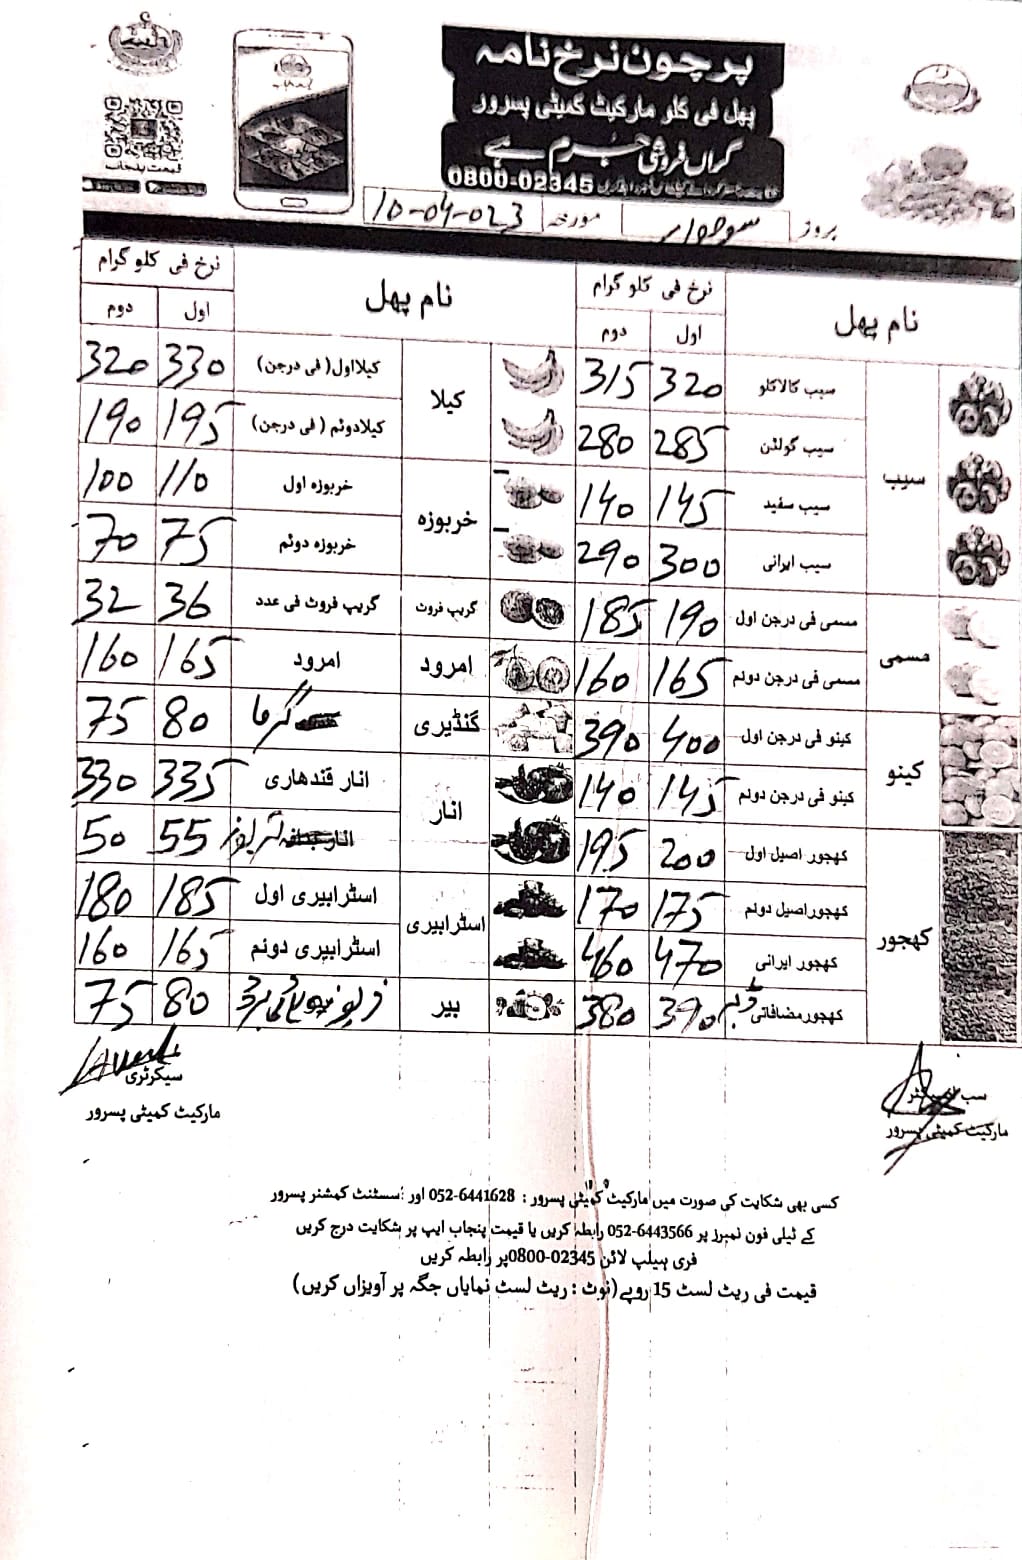 پرچون نرخ نامہ
پھل فی کلو مارکیٹ کمیٹی پسرور
گراں فروشی جرم ہے
0800-02345
قیمت پنجاب
بروز سوموار مورخہ 10-04-023
نام پھل نرخ فی کلو گرام اول دوم
سیب
سیب کالاکلو 320 315
سیب گولڈن 285 280
سیب سفید 145 140
سیب ایرانی 300 290
مسمی
مسمی فی درجن اول 190 185
مسمی فی درجن دوئم 165 160
کینو
کینو فی درجن اول 400 390
کینو فی درجن دوئم 145 140
کھجور
کھجور اصیل اول 200 195
کھجور اصیل دوئم 175 170
کھجور ایرانی 470 460
کھجور مضافاتی ڈبہ 390 380
نام پھل نرخ فی کلو گرام اول دوم
کیلا
کیلا اول (فی درجن) 330 320
کیلا دوئم (فی درجن) 195 190
خربوزہ
خربوزہ اول 110 100
خربوزہ دوئم 75 70
گریپ فروٹ
گریپ فروٹ فی عدد 36 32
امرود
امرود 165 160
گنڈیری
گرما 80 75
انار
انار قندھاری 335 330
تربوز 55 50
اسٹرابیری
اسٹرابیری اول 185 180
اسٹرابیری دوئم 165 160
بیر
80 75
سیکرٹری
مارکیٹ کمیٹی پسرور
مارکیٹ کمیٹی پسرور
کسی بھی شکایت کی صورت میں مارکیٹ کمیٹی پسرور : 052-6441628 اور اسسٹنٹ کمشنر پسرور
کے ٹیلی فون نمبرز پر 052-6443566 رابطہ کریں یا قیمت پنجاب ایپ پر شکایت درج کریں
فری ہیلپ لائن 0800-02345پر رابطہ کریں
قیمت فی ریٹ لسٹ 15 روپے(نوٹ : ریٹ لسٹ نمایاں جگہ پر آویزاں کریں)